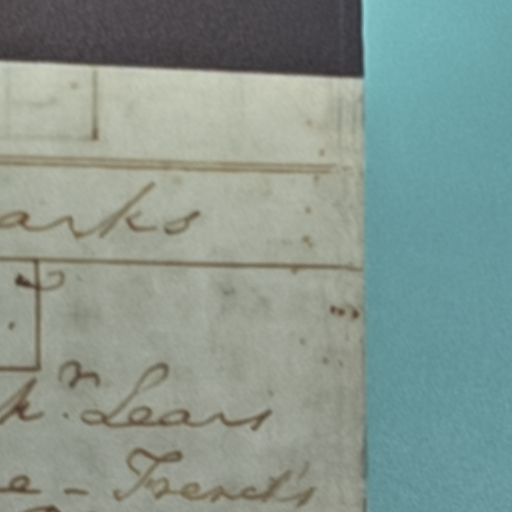 arks
k.r Lears
e - French's